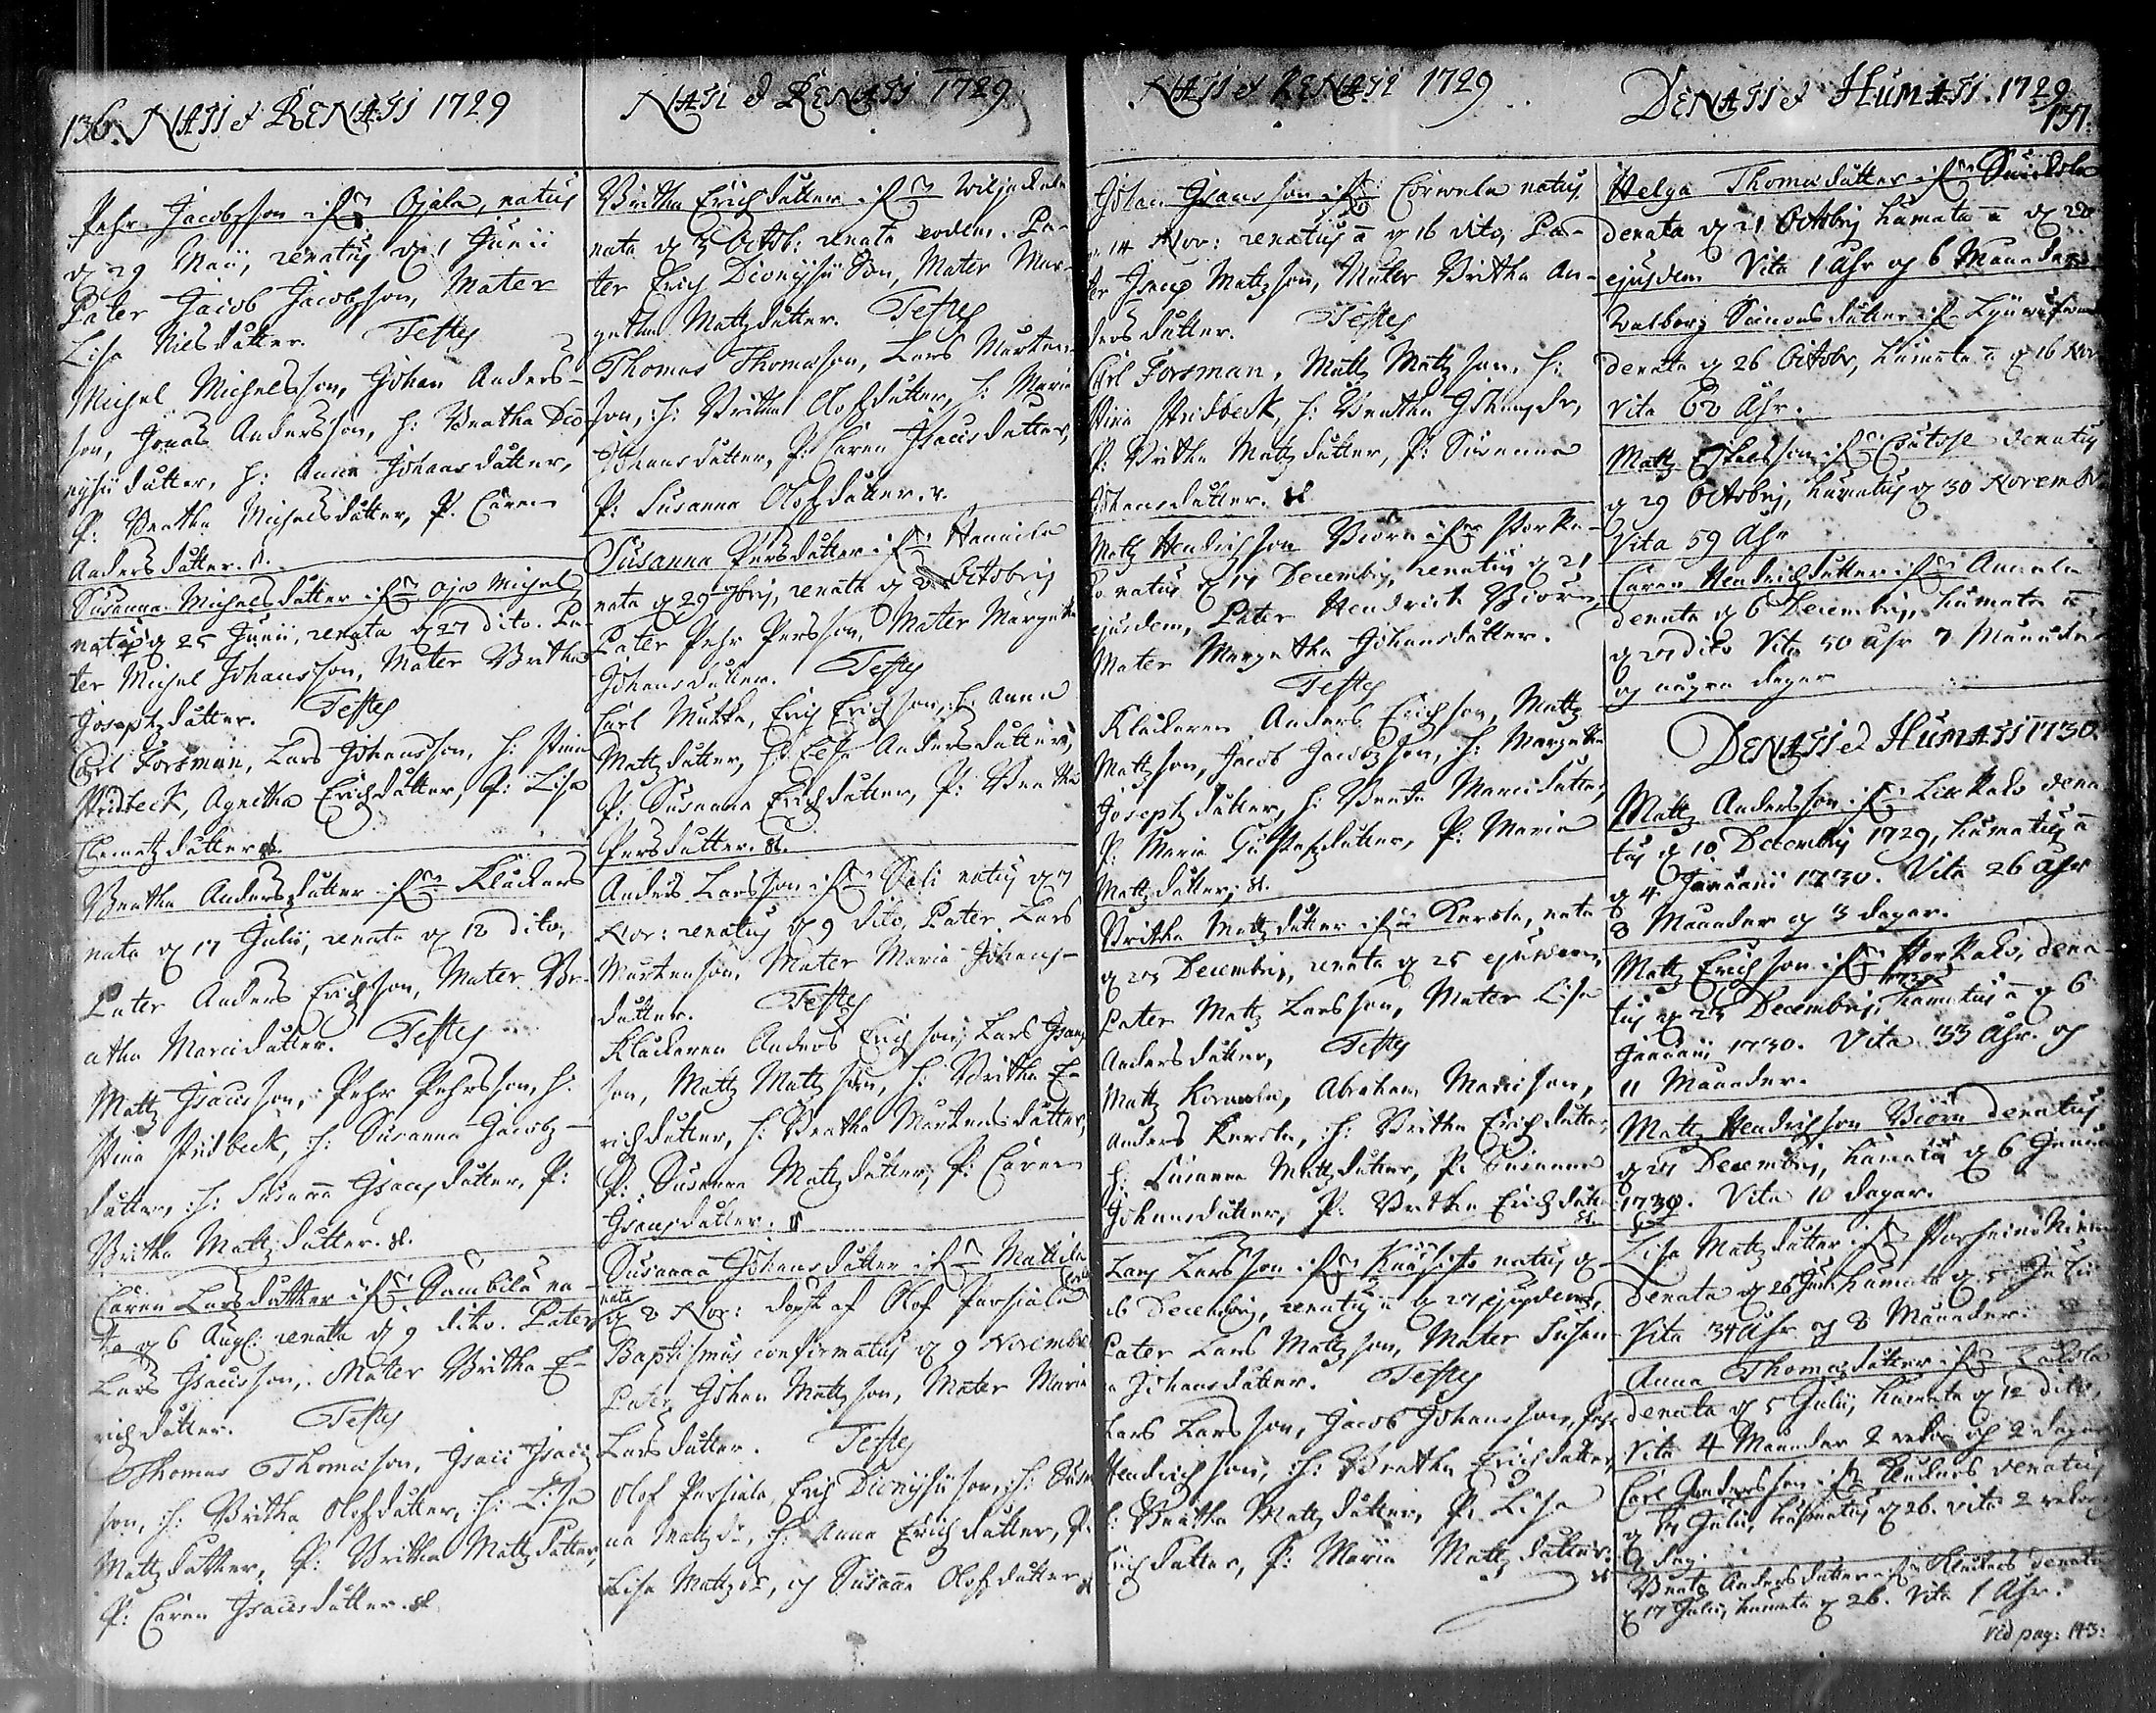 136. NATI et RENATI 1729
Pehr Jacobsson ifrån Ojala, natus
d 29 Maii, renatus d 1 Junii
Pater Jacob Jacobsson, Mater
Lisa Nilsdatter. Testes
Michel Michelsson, Johan Anders-
son, Jonas Andersson, h: Beatha Dio-
nysiidatter, h: Anna Johansdatter,
P: Beatha Michelsdatter, P. Caren
Andersdatter.
Susanna Michelsdatter ifrån Oja Michel
nata d 25 Junii, renata d 27 dito. Pa-
ter Michel Johansson, Mater Britha
Josephsdatter. Testes
Carl Forsman, Lars Johansson, h: Stina
Stridbeck, Agnetha Erichsdatter, P: Lisa
Clemetzdatter
Beatha Andersdatter ifrån Klåckars
nata d 17 Julii, renata d 18 dito,
Pater Anders Erichsson, Mater Be-
atha Marcidatter. Testes
Mattz Isacsson, Pehr Pehrsson, h:
Stina Stridbeck, h: Susanna Jacobs-
datter, h: Susana Isacsdatter, P:
Britha Mattzdatter.
Caren Larsdatter ifrån Sambila na-
ta d 6 Aug: renata d 9 dito. Pater
Lars Isacsson, Mater Britha E-
richsdatter. Testes
Thomas Thomasson, Isac Isacs-
son, h: Britha Olofsdatter, h: Lisa
Mattzdatter, P: Britha Mattzdatter,
P: Caren Isacsdatter.
NATI et RENATI 1729
Britha Erichsdatter ifrån Wiljakala
nata d 3 Octob: renata eodem. Pa-
ter Erich Dionysii Son, Mater Mar-
getha Mattzdatter. Testes
Thomas Thomasson, Lars Martens-
son, h: Britha Olofsdatter, h: Maria
Johansdatter, P: Caren Isacsdatter,
P: Susanna Olofsdatter.
Susanna Persdatter ifrån Hannila
nata d 29 7bris, renata d Octobris
Pater Pehr Persson, Mater Margetha
Johansdatter. Testes
Carl Mukka, Erich Erichsson, h: Anna
Mattzdatter, h: Lisa Andersdatter,
P: Susanna Erichsdatter, P: Beatha
Persdatter.
Anders Larsson ifrån Sali natus d 7
Nov: renatus d 9 dito, Pater Lars
Martensson, Mater Maria Johans-
datter. Testes
Klåckaren Anders Erichsson, Lars Isacs-
son, Mattz Mattzson, h: Britha E-
richsdatter, h: Beatha Martensdatter,
P: Susanna Mattzdatter, P: Caren
Isacsdatter.
Susanna Johansdatter ifrån Mattila
nata
d 8 Nov: döpt af Olof Parsiala
Baptismus confirmatus d 9 Novembr
Pater Johan Mattzson, Mater Maria
Larsdatter. Testes
Olof Parsiala, Erich Dionysiison, h: Susan
na Mattzdr, h: Anna Erichsdatter, P.
Lisa Mattzdr, och Susanna Olofsdatter
NATI et RENATI 1729
Johan Isacsson ifrån Corwela natus
d 14 Nov: renatus d 16 dito, Pa-
ter Isac Mattzson, Mater Britha An-
dersdatter. Testes
Carl Forsman, Mattz Mattzson, h:
Stina Stridbeck, h: Beatha Johansdr,
P: Britha Mattzdatter, P: Susanna
Johansdatter.
Mattz Hendrichsson Biörn ifrån Horka-
lo natus d 17 Decembris, renatus d 21
ejusdem, Pater Hendrich Biörn,
Mater Margetha Johansdatter.
Testes
Klåckaren Anders Erichsson, Mattz
Mattzson, Jacob Jacobsson, h: Margetha
Josephsdatter, h: Beata Marcidatter,
P: Maria Gustafsdatter, P: Maria
Mattzdatter,
Britha Mattzdatter ifrån Kerola, nata
d 23 Decembris, renata d 25 ejusdem,
Pater Mattz Larsson, Mater Lisa
Andersdatter, Testes
Mattz Korwela, Abraham Marcison,
Anders Kerola, h: Britha Erichsdatter,
h: Susanna Mattzdatter, P. Susanna
Johansdatter, P: Beatha Erichsdatter
Lars Larsson ifrån Kuusisto natus d
26 Decembris, renatus d 27 ejusdem,
Pater Lars Mattzson, Mater Susan-
a Johansdatter. Testes
Lars Larsson, Jacob Johansson, Pehr
Hendrichsson, h: Beatha Erichsdatter,
h: Beatha Mattzdatter, P. Lisa
Erichsdatter, P: Maria Mattzdatter.
DENATI et HUMATI. 1729.
137.
Helga Thomasdatter ifrån Suikola
Denata d 21 Octobris humata d 26
ejusdem Vita 1 Åhr och 6 Månader
Walborg Simonsdatter ifrån
Denata d 26 Octobr, humata d 16 Nov
Vita 62 Åhr.
Mattz Eskelsson ifrån denatus
d 29 Octobris, humatus d 30 Novembr
Vita 59 Åhr
Caren Hendrichsdatter ifrån Annala
denata d 6 Decembris, humata
d 27 dito Vita 50 Åhr 7 Månader
och några dagar
DENATI et HUMATI 1730.
Mattz Andersson ifrån dena-
tus d 10 Decembris 1729, humatus
d 4 Januarii 1730. Vita 26 Åhr
8 Månader och 3 dagar.
Mattz Erichsson ifrån Horkalo, dena-
tus d 23 Decembris, humatus d 6
Januarii 1730. Vita 33 Åhr och
11 Månader.
Mattz Hendrichsson Biörn denatus
d 27 Decembris, humatus d 6 Januar
1730. Vita 10 dagar.
Lisa Mattzdatter ifrån
Denata d 26 Junii humata d 5 Julii
Vita 34 Åhr och 8 Månader.
Anna Thomasdatter ifrån
Denata d 5 Julii, humata d 12 dito,
Vita 4 Månader 2 wekor och 2 dagar
Carl Andersson ifrån Klåckars denatus
d 14 Julii, humatus d 26. Vita 2 wekor
dag.
Beata Andersdatter ifrån Klåckars denata
d 17 Julii, humata d 26. Vita 1 Åhr.
Vid pag: 143: